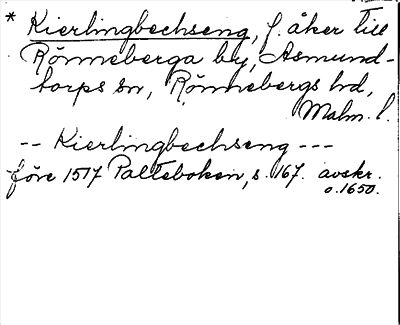 * Kierlingbechseng, f. åker till
Rönneberga by, Asmund-
torps sn, Rönnebergs hd,
Malm. l.
-- Kierlingbechseng ---
före 1517 Palteboken, s. 167. avskr.
o. 1650.